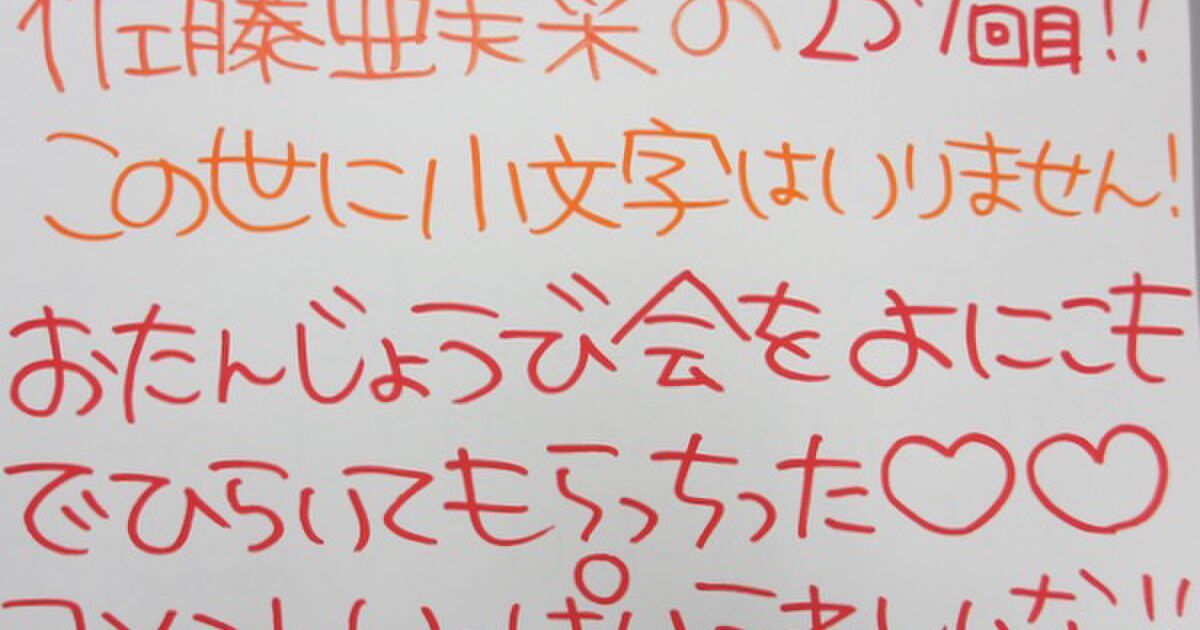 佐藤亜美菜の251回目!!
この世に小文字はいりません!
おたんじょうび会をよにこも
でひらいてもらっちった♡♡